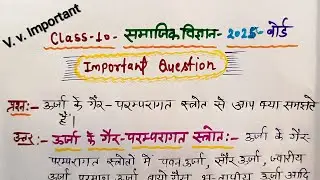 V.v. Important
Class-10- समाजिक विज्ञान- 2025- बोर्ड
Important Question
प्रश्न:- ऊर्जा के गैर-परम्परागत स्त्रोत से आप क्या समझते
है।
उत्तर:- ऊर्जा के गैर-परम्परागत स्त्रोत:- ऊर्जा के गैर-
परम्परागत स्त्रोतो में पवन ऊर्जा, सौर ऊर्जा, ज्वारीय
ऊर्जा परमाणु ऊर्जा बायो गैस भू-तापीय ऊर्जा आदि